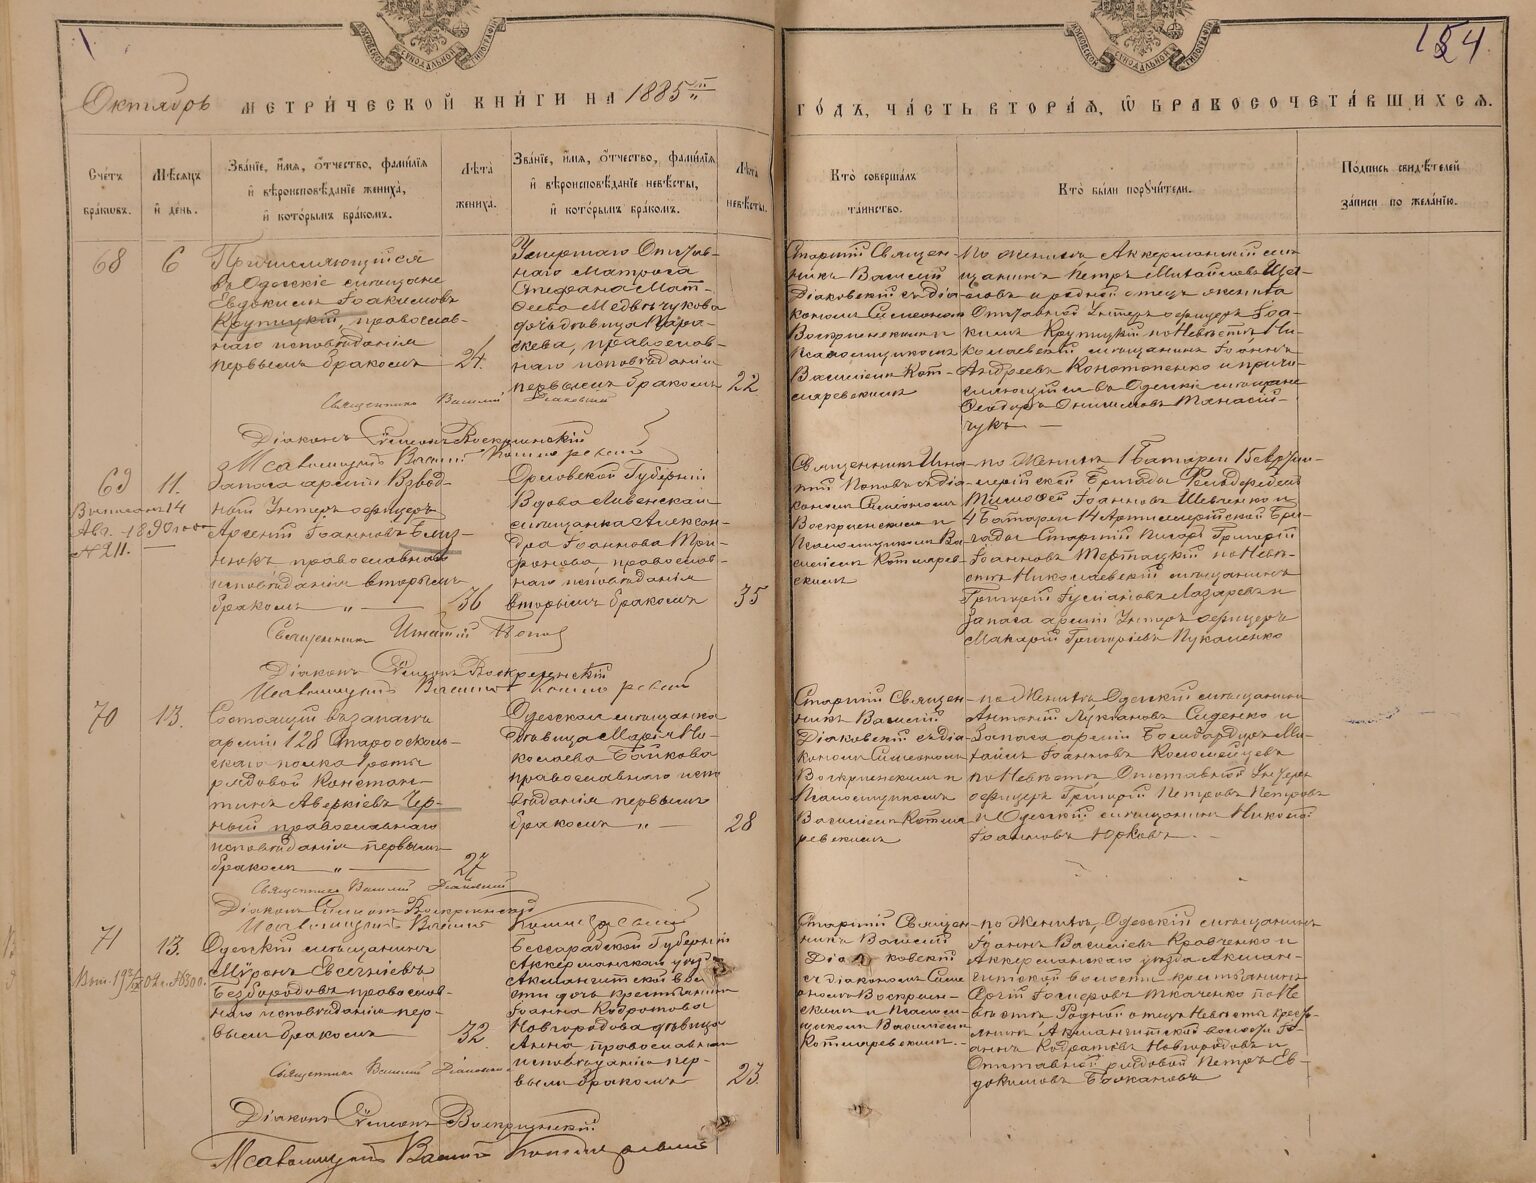 154
МОСКОВСКОЙ СѴНОДАЛЬНОЙ ТИПОГРАФІИ
МОСКОВСКОЙ СѴНОДАЛЬНОЙ ТИПОГРАФІИ
Октябрь МЕТРИ́ЧЕСКОЙ КНИ́ГИ НА 1885 ГО́ДЪ, ЧА́СТЬ ВТОРА́Я, Ѡ҆ БРАКОСОЧЕТА́ВШИХСЯ.
Сче́тъ бра́кѡвъ.
Мѣ́сяцъ и҆ де́нь.
Зва́нїе, и҆́мя, ѻ҆́тчество, фами́лїя
и҆ вѣроисповѣ́данїе жениха̀,
и҆ кото́рымъ бра́комъ.
Лѣ́та
жениха̀.
Зва́нїе, и҆́мя, ѻ҆́тчество, фами́лїя
и҆ вѣроисповѣ́данїе невѣ́сты,
и҆ кото́рымъ бра́комъ.
Лѣ́та
невѣ́сты.
Кто̀ соверша́лъ
та́инство.
Кто̀ бы́ли порꙋчи́тели.
По́дпись свидѣ́телей
за́писи по жела́нїю.
68
6
Причисляющійся
въ Одесскіе мѣщане
Евдокимъ Іоакимовъ
Крупицкій, православ-
наго исповѣданія
первымъ бракомъ
24.
Умершаго Отстав-
наго Матроса
Стефана Мат-
ѳеева Медвѣчукова
дочь дѣвица Пара-
скева, православ-
наго исповѣданія
первымъ бракомъ
22
Старшій Священ-
никъ Василій
Діаковскій съ діа-
кономъ Симеономъ
Воскресенскимъ и
Псаломщикомъ
Василіемъ Кот-
ляревскимъ
По женихѣ Аккерманскій мѣ-
щанинъ Петръ Михайловъ
и родной отецъ жениха
Отставной Унтеръ офицеръ Іоа-
кимъ Крупицкій по Невѣстѣ Ни-
колаевскій мѣщанинъ Іоаннъ
Андреевъ Конотопенко и причи-
сляющійся въ Одесскіе мѣщане
Ѳеодоръ Онисимовъ Танасій-
чукъ —
Священникъ Василій Діаковскій
Діаконъ Симеонъ Воскресенскій
Псаломщикъ Василій Котляревскій
69
11.
Выписанъ 14
Авг. 1890 года
№ 211.
Запаса арміи Взвод-
ный Унтеръ офицеръ
Арсеній Іоанновъ Близ-
нюкъ православнаго
исповѣданія вторымъ
бракомъ „ —
36
Орловской Губерніи
Вдова Ливенская
мѣщанка Алексан-
дра Іоаннова Три-
фонова, православ-
наго исповѣданія
вторымъ бракомъ
35
Священникъ Игна-
тій Поповъ съ діа-
кономъ Симеономъ
Воскресенскимъ и
Псаломщикомъ Ва-
силіемъ Котлярев-
скимъ
по Женихѣ 1 Батареи 15 Артил-
лерійской Бригады Фельдфебель
Тимоѳей Іоанновъ Шевченко и
4 Батареи 14 Артиллерійской Бри-
гады Старшій Писарь Григорій
Іоанновъ по Невѣ-
стѣ Николаевскій мѣщанинъ
Григорій Лазаревъ и
Запаса арміи Унтеръ офицеръ
Макарій Григоріевъ Пукаленко
Священникъ Игнатій Поповъ
Діаконъ Симеонъ Воскресенскій
Псаломщикъ Василій Котляревскій
70
13.
Состоящій въ запасѣ
арміи 128 Старооскол-
скаго полка
рядовой Констан-
тинъ Аверкіевъ Чер-
ный православнаго
исповѣданія первымъ
бракомъ „ —
27
Одесская мѣщанка
дѣвица Марія Ни-
колаева Бойкова
православнаго испо
вѣданія первымъ
бракомъ „ —
28
Старшій Священ-
никъ Василій
Діаковскій съ діа-
кономъ Симеономъ
Воскресенскимъ и
Псаломщикомъ
Василіемъ Котля
ревскимъ
по Женихѣ Одесскій мѣщанинъ
Антоній Лукіановъ Сиденко и
Запаса арміи Бомбардиръ Ми-
хаилъ Іоанновъ Коломейцевъ
по Невѣстѣ Отставной Унтеръ
офицеръ Григорій Петровъ Петровъ
и Одесскій мѣщанинъ Николай
Іоанновъ Юрковъ. —
Священникъ Василій Діаковскій
Діаконъ Симеонъ Воскресенскій
Псаломщикъ Василій Котляревскій
71
13.
Одесскій мѣщанинъ
Мѵронъ Евсевіевъ
Безбородовъ православ-
наго исповѣданія пер-
вымъ бракомъ
32
Бессарабской Губерніи
Аккерманскаго уѣзда
Акмангитской вол
сти дочь крестьянина
Іоанна Кодратова
Новгородова дѣвица
Анна православнаго
исповѣданія пер-
вымъ бракомъ
23.
Старшій Священ
никъ Василій
Діаковскій
съ діакономъ Симе
ономъ Воскресен-
скимъ и Псалом-
щикомъ Василіемъ
Котляревскимъ. —
по Женихѣ, Одесскій мѣщанинъ
Іоаннъ Василіевъ Кравченко и
Аккерманскаго уѣзда Акман-
гитской волости крестьянинъ
Сергій Ткаченко по Не
вѣстѣ Родной отецъ Невѣсты кресть-
янинъ Акмангитской волости Іо-
аннъ Кодратовъ Новгородовъ и
Отставной рядовой Петръ Ев-
докимовъ Балкановъ
Священникъ Василій Діаковскій
Діаконъ Симеонъ Воскресенскій
Псаломщикъ Василій Котляревскій